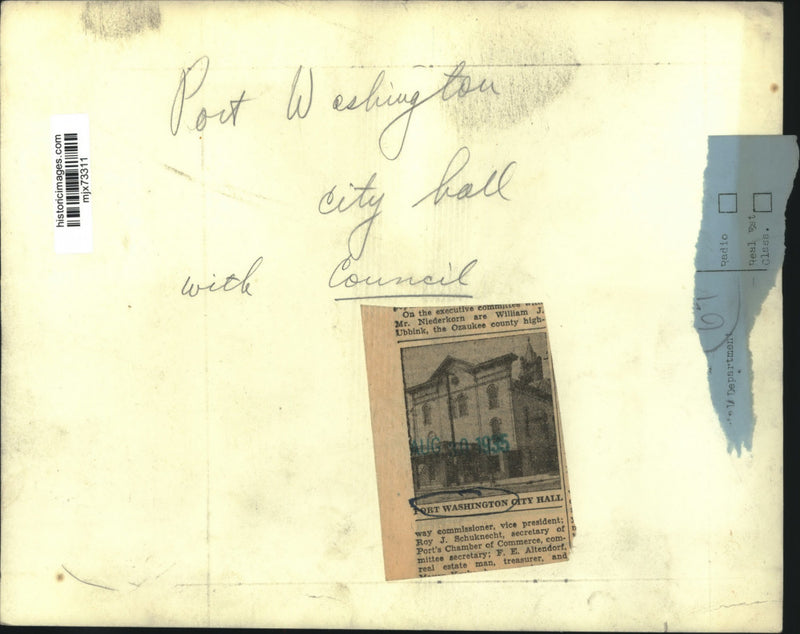 Port Washington
city hall
with Council
historicimages.com
mjx73311
On the executive committee with
Mr. Niederkorn are William J.
Ubbink, the Ozaukee county high-
AUG 1935
PORT WASHINGTON CITY HALL
way commissioner, vice president;
Roy J. Schuknecht, secretary of
Port's Chamber of Commerce, com-
mittee secretary; F. E. Altendorf,
real estate man, treasurer, and
Radio
Real Est
Class.
Department